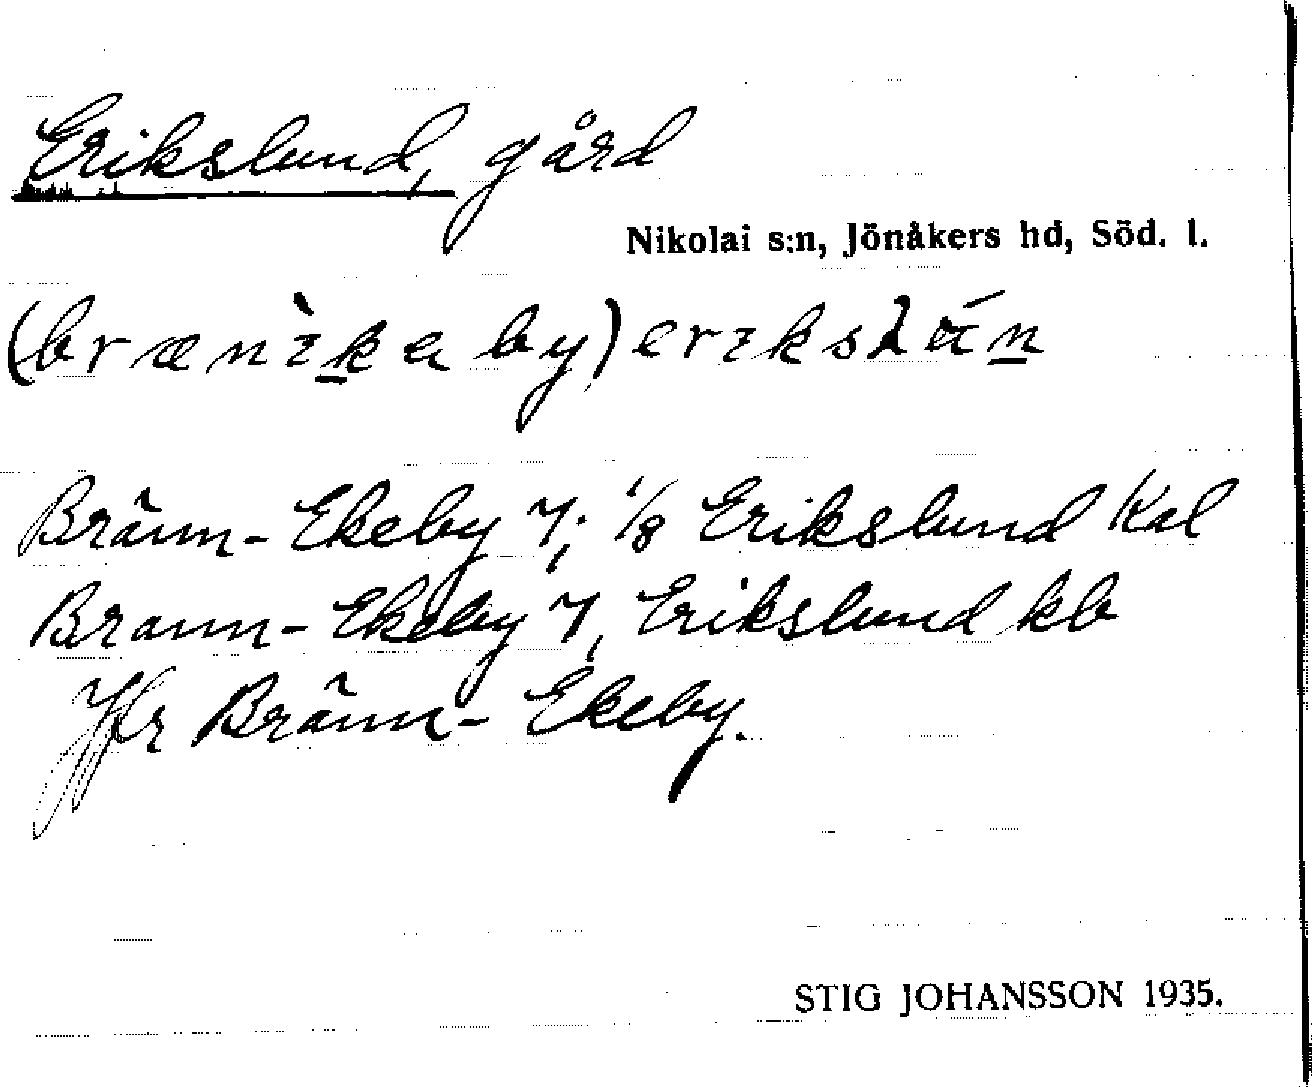 Erikslund, gård
Nikolai s:n, Jönåkers hd, Söd. l.
(brænìkeby) erikslán
Bränn-Ekeby 7; 1/8 Erikslund Kal
Brann-Ekeby 7, Erikslund kb
Jfr Bränn-Ekeby.
STIG JOHANSSON 1935.